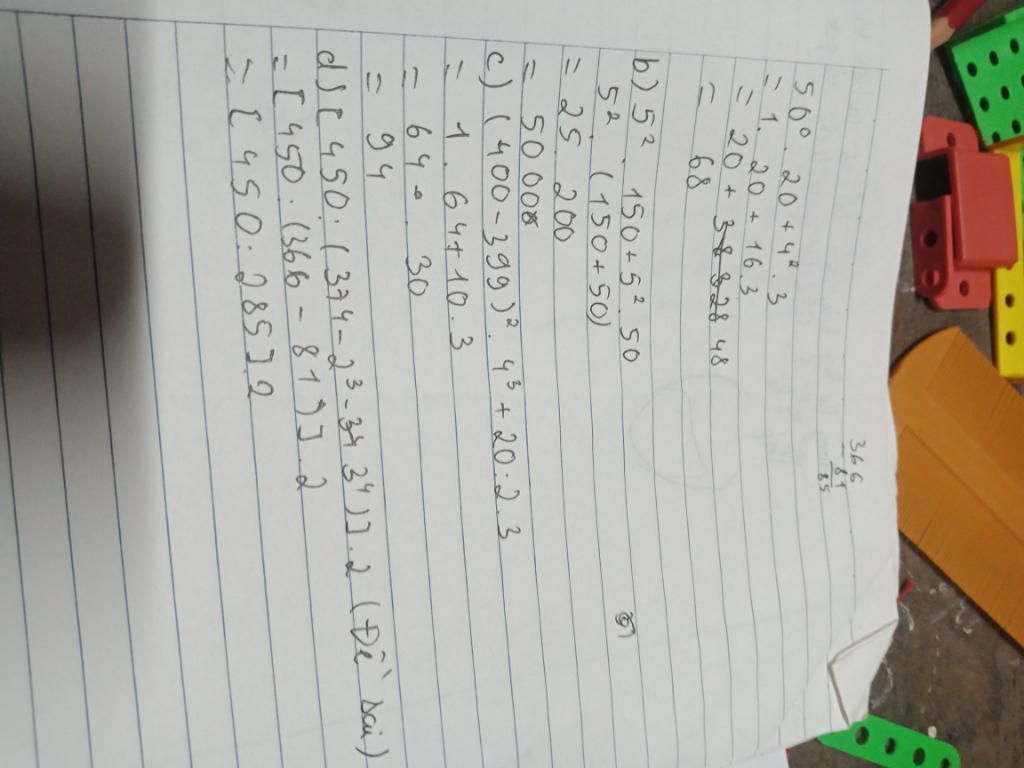 366
81
85
50⁰. 20 + 4². 3
= 1. 20 + 16. 3
= 20 + 48
= 68
b) 5². 150 + 5². 50
5². (150 + 50)
= 25. 200
= 5000
c) (400 - 399)². 4³ + 20 : 2. 3
= 1. 64 + 10. 3
= 64 + 30
= 94
d) [450 : (374 - 2³ - 3⁴)]. 2 (Đề sai)
= [450 : (366 - 81)]. 2
= [450 : 285]. 2